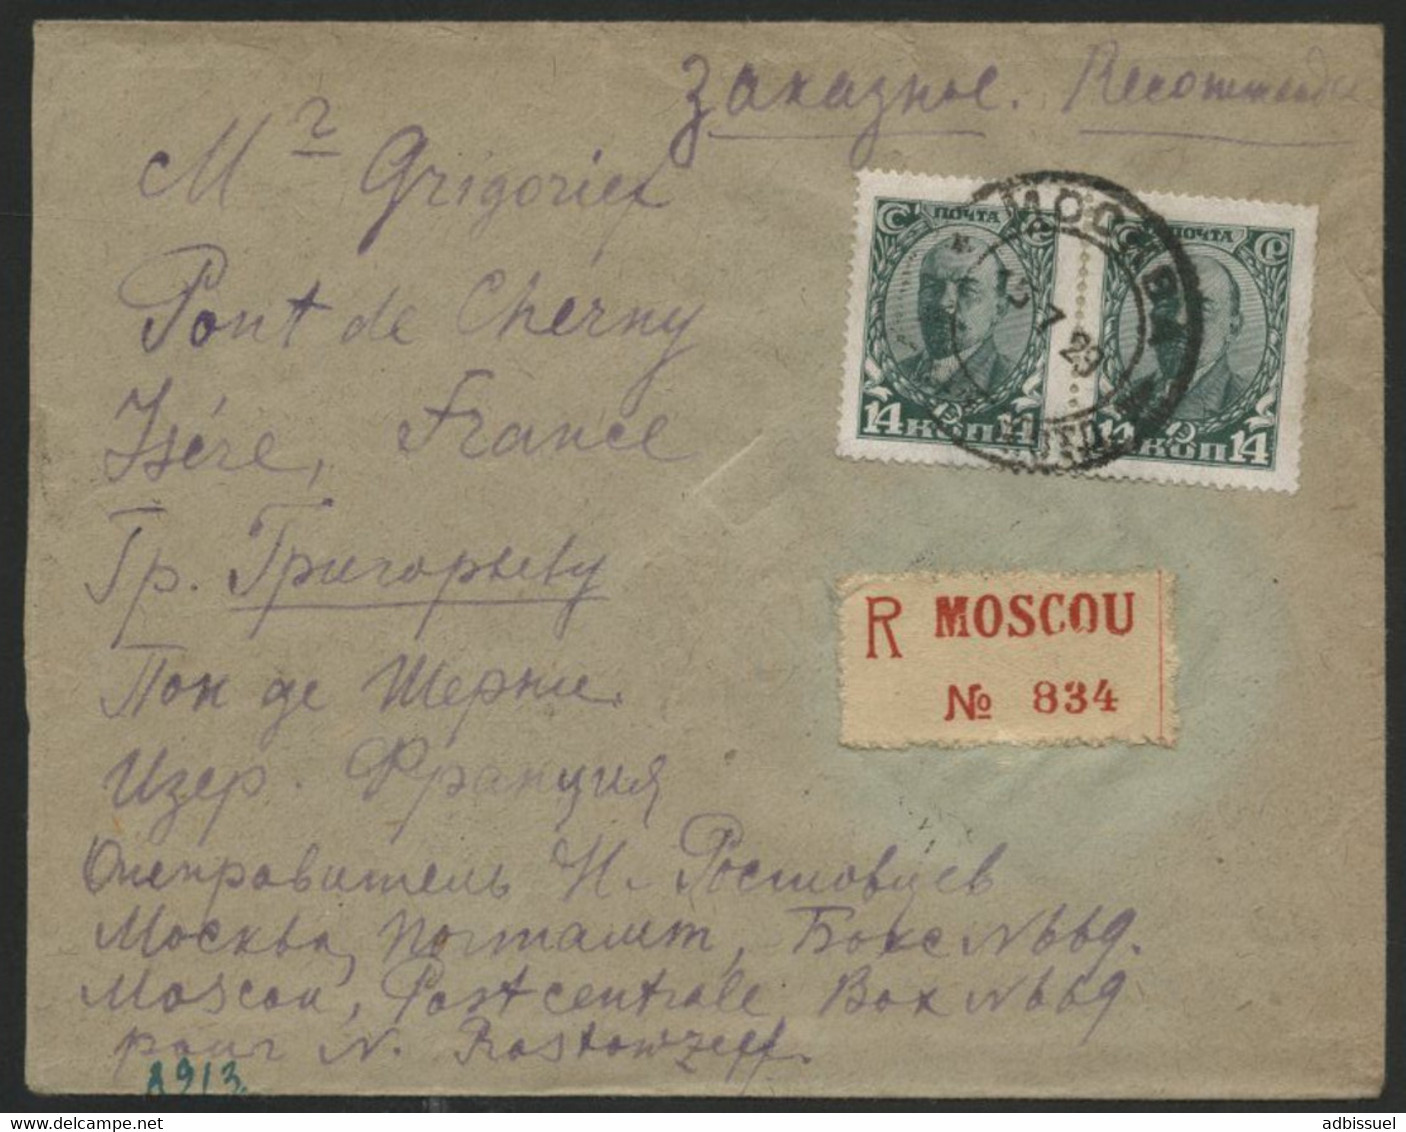 Заказное. Recommandée
Mr Grigorief
Pont de Cherny
Isére, France
Гр. Григорьеву
Пон де Шерни.
Изер. Франция
Отправитель Н. Ростовцев
Москва, Почтамт, Бокс № 669.
Moscou, Post centrale, Box № 669
pour N. Rostowzeff.
8913.
ПОЧТА
14 КОП 14
ПОЧТА
14 КОП 14
МОСКВА
13 7 29
R MOSCOU
№ 834
www.delcampe.net
adbissuel